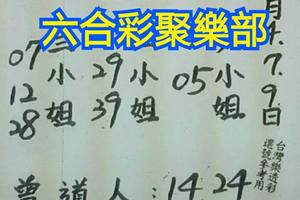 六合彩聚樂部
月4.7.9日
三小姐 07 12 28
小姐 29 39
小姐 05
曾道人:14 24
台灣樂透彩
選號參考用